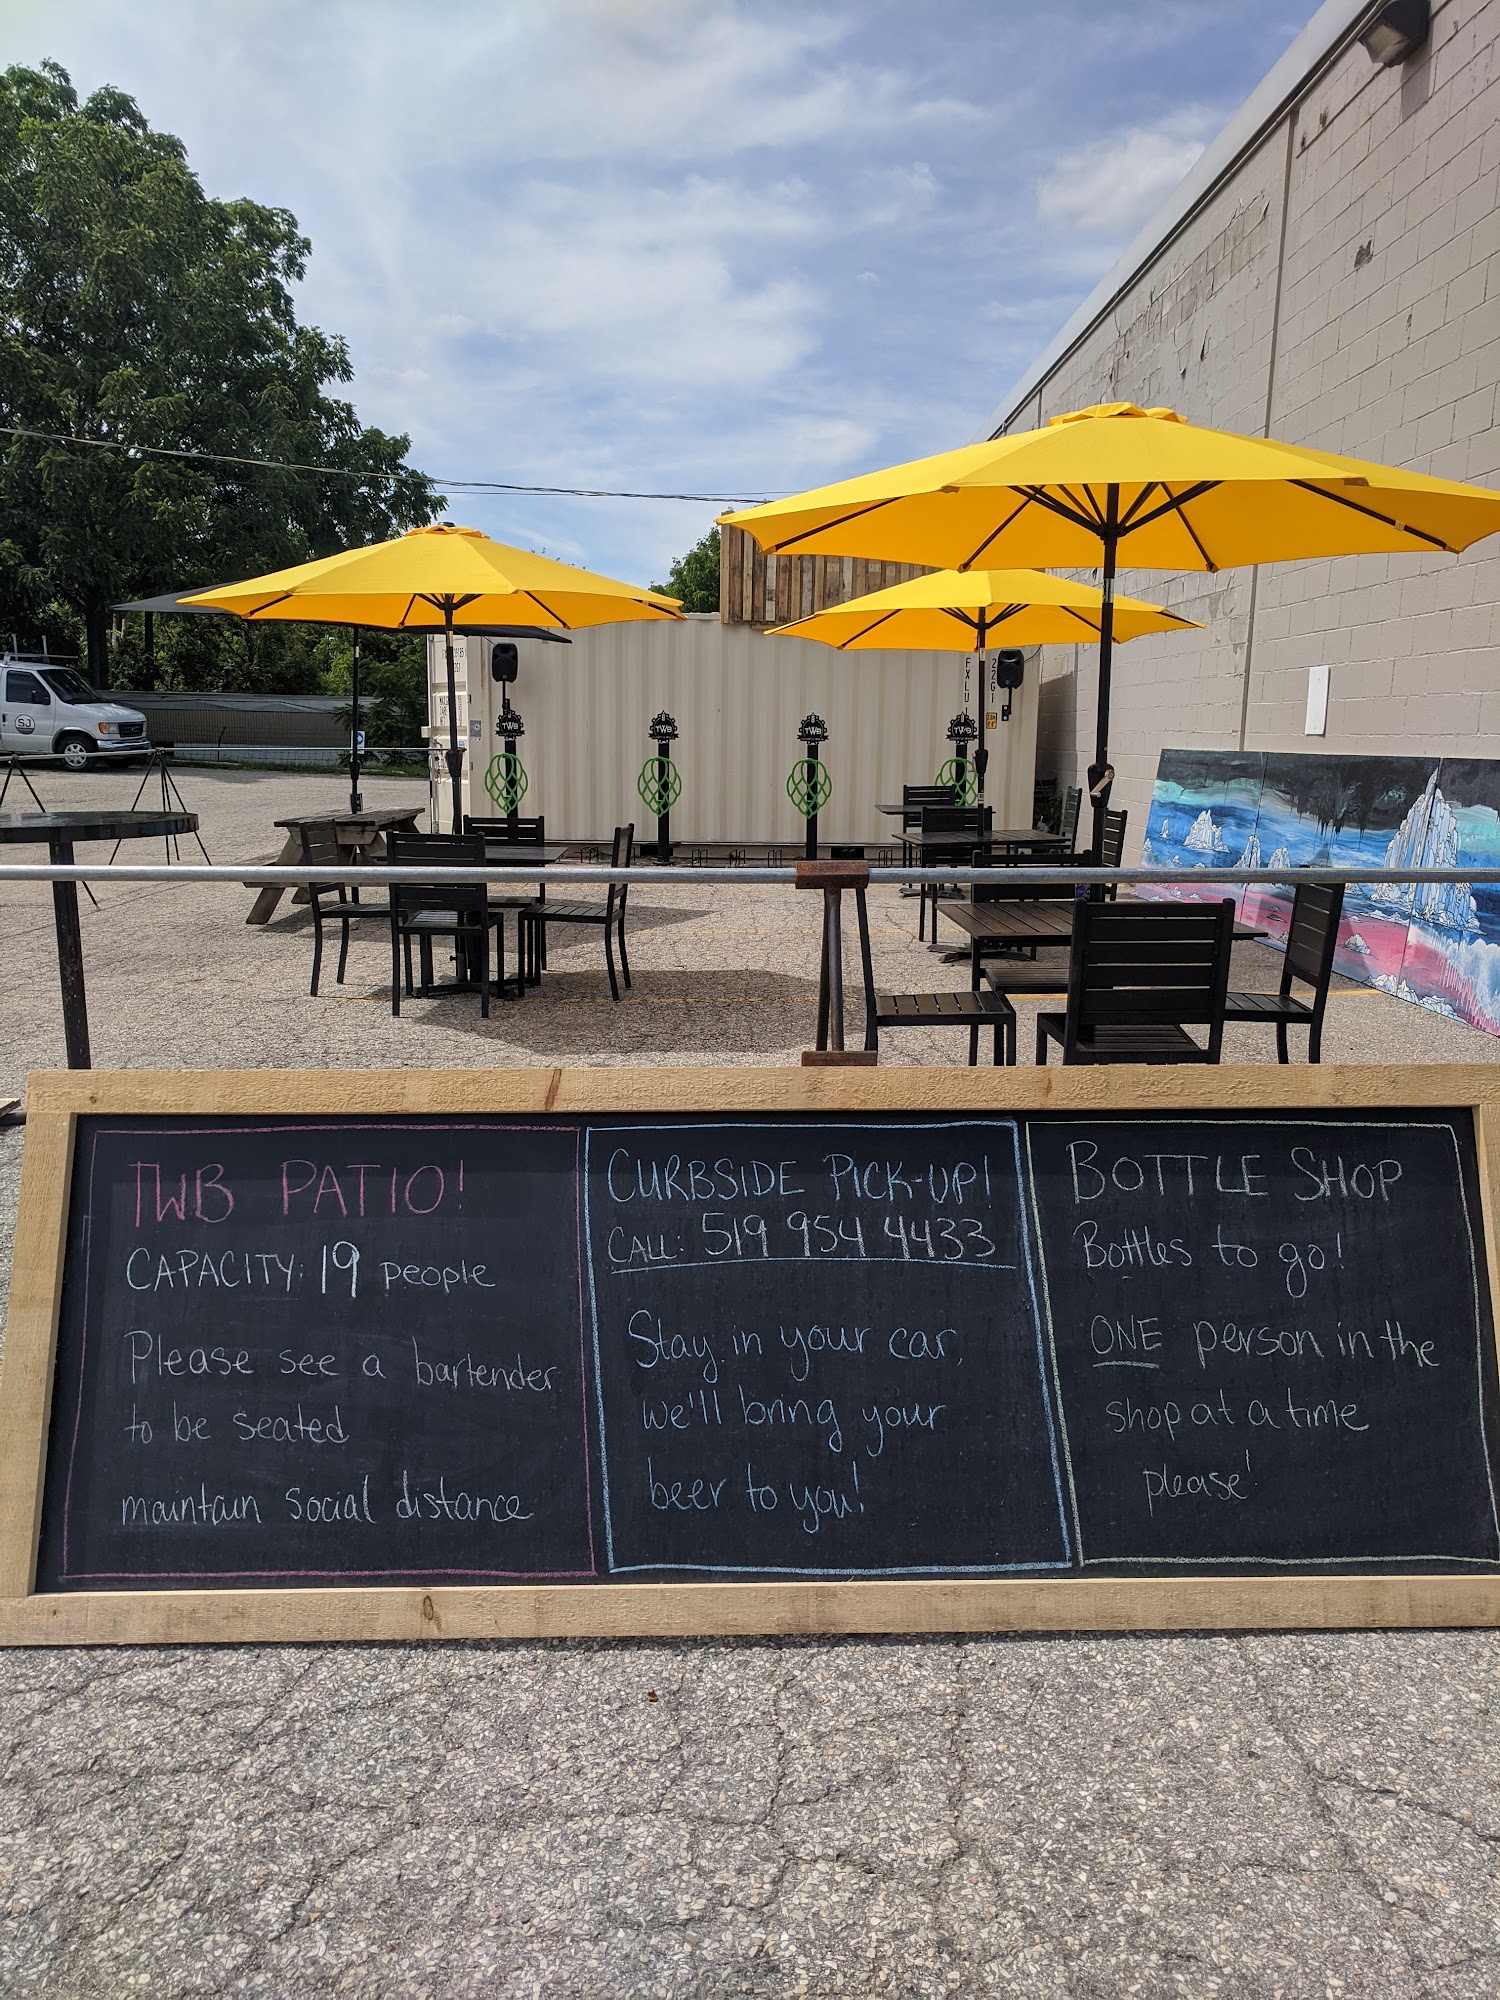 22G1
SJ
TWB
TWB
TWB
TWB
TWB PATIO!
CAPACITY: 19 people
Please see a bartender
to be seated
maintain social distance
CURBSIDE PICK-UP!
CALL: 519 954 4433
Stay in your car,
we'll bring your
beer to you!
BOTTLE SHOP
Bottles to go!
ONE person in the
shop at a time
please!